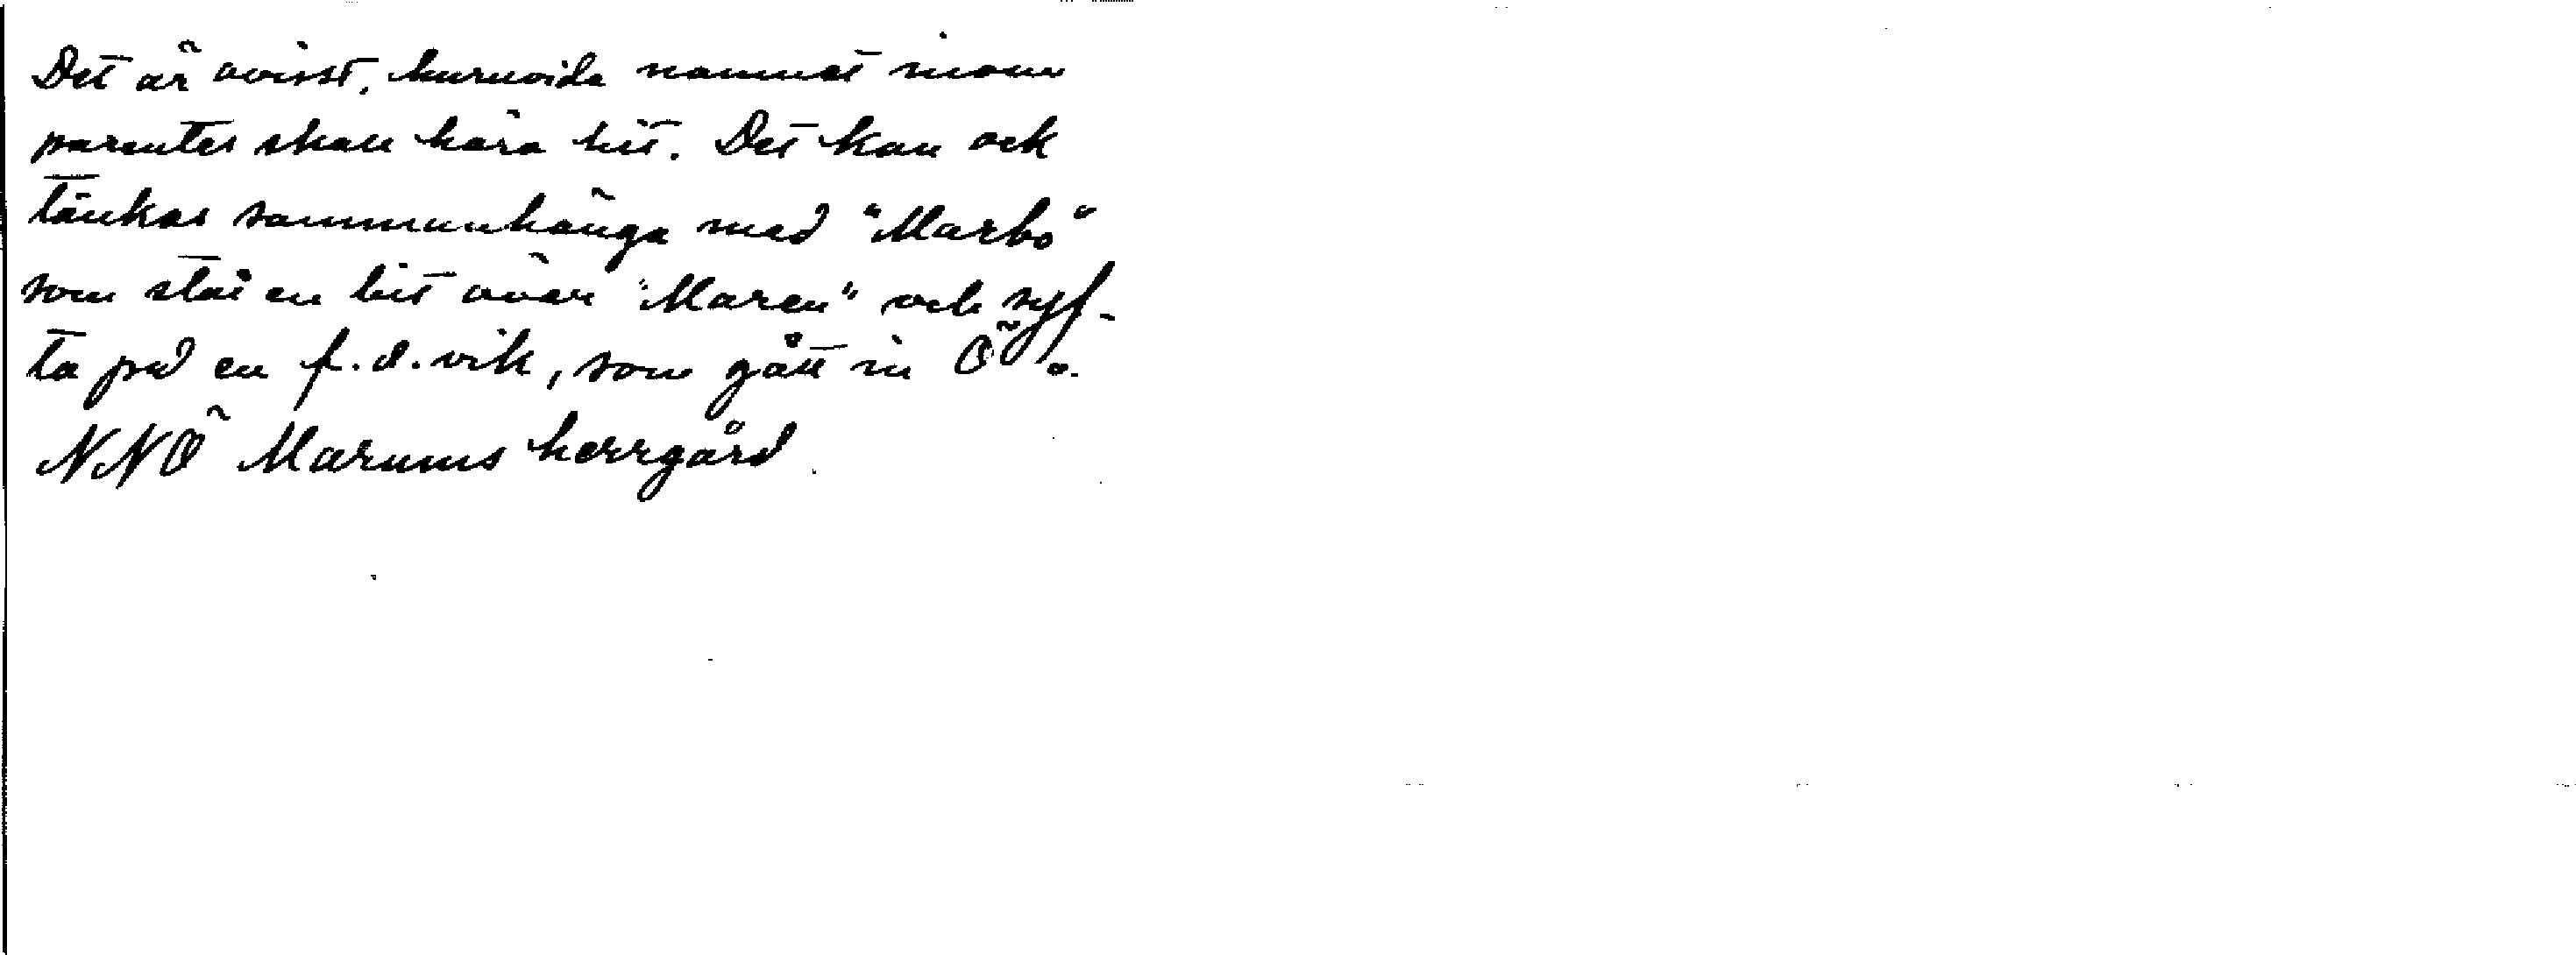 Det är ovisst, huruvida namnet inom
parentes skall höra hit. Det kan ock
tänkas sammanhänga med "Marbo"
som står en bit över "Maren" och syf-
ta på en f.d. vik, som gått in Ö o.
NNÖ Marums herrgård.